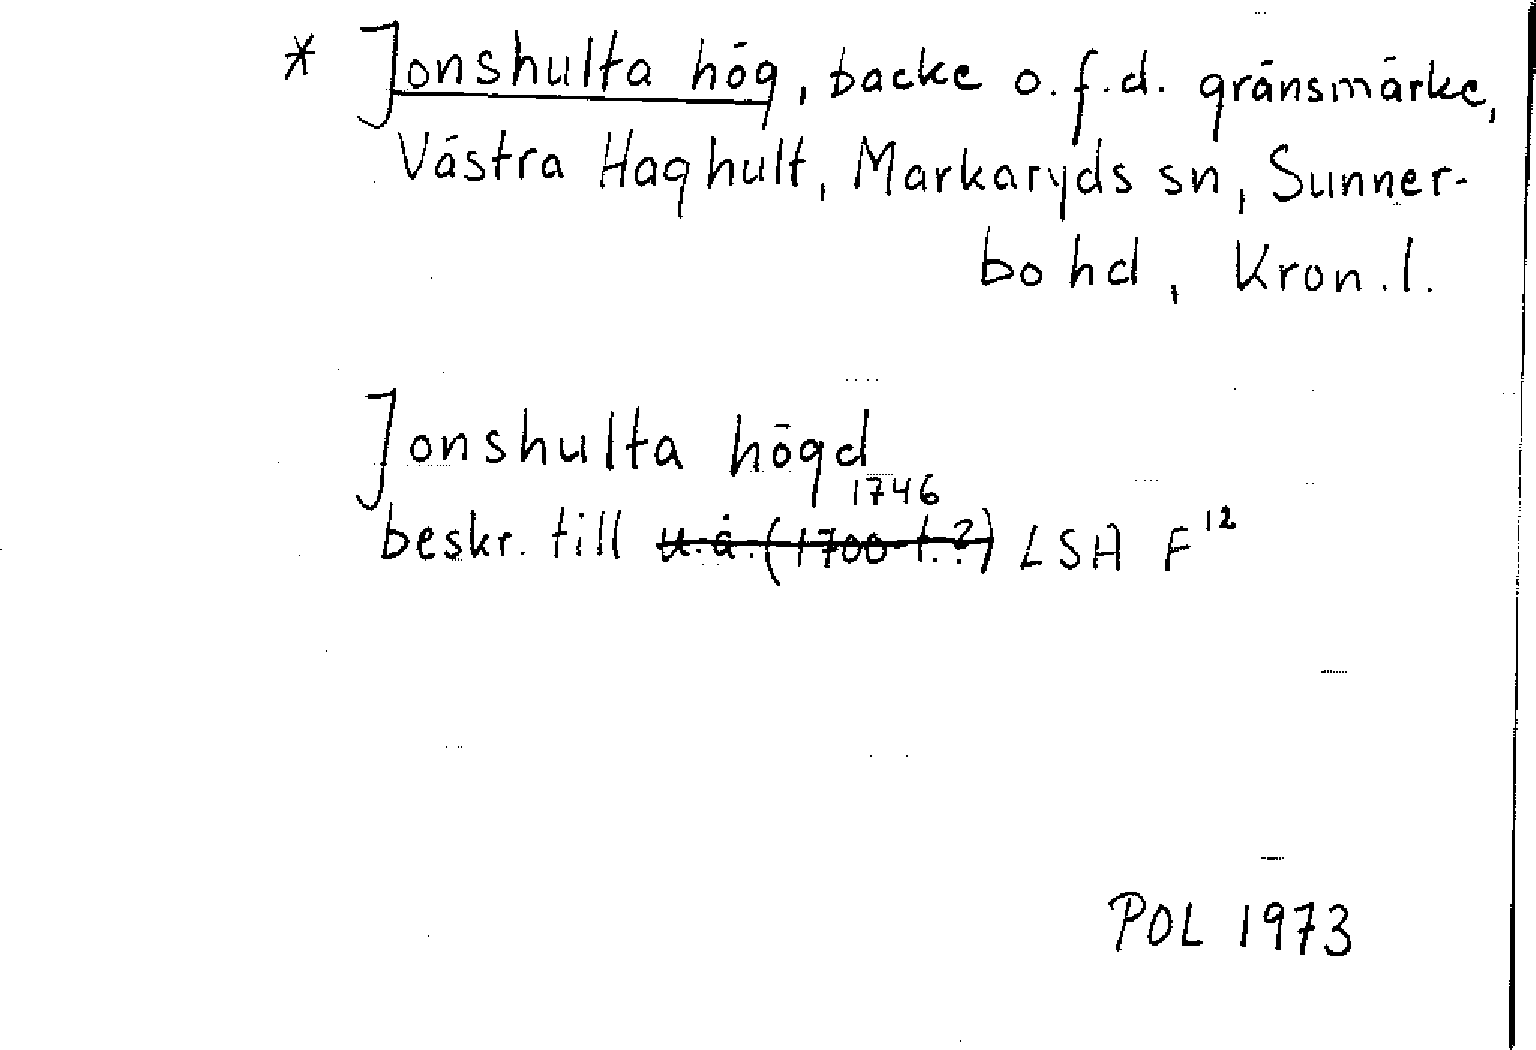 * Jonshulta hög, backe o.f.d. gränsmärke,
Västra Haghult, Markaryds sn, Sunner-
bo hd, Kron.l.
Jonshulta högd
1746
beskr. till u.å. (1700-t.?) LSA F¹²
POL 1973